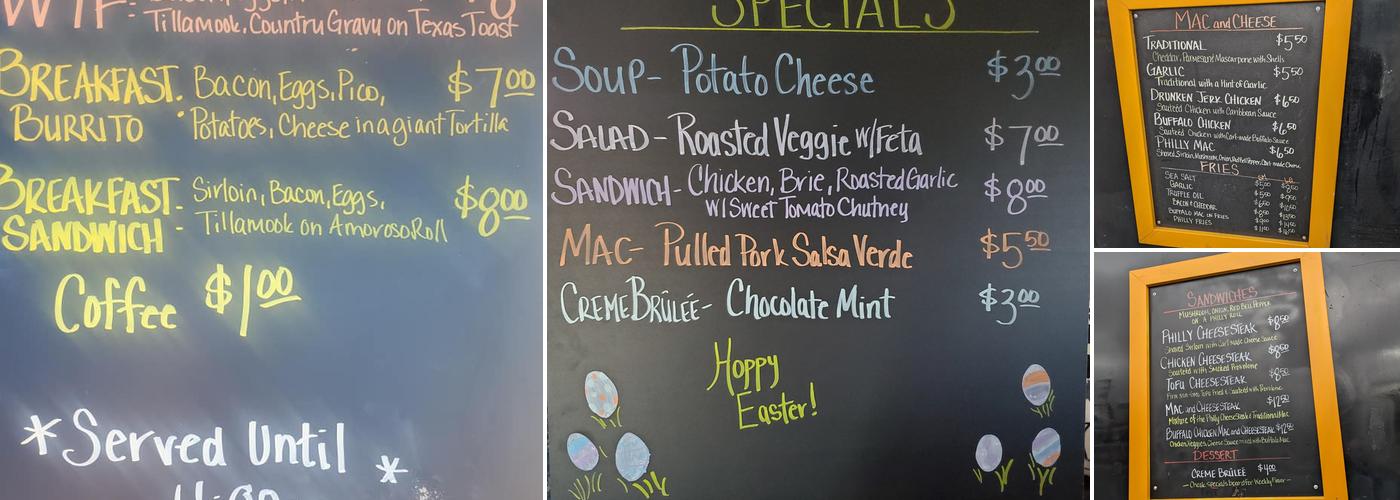 Tillamook, Country Gravy on Texas Toast
BREAKFAST. Bacon, Eggs, Pico, $7.00
BURRITO Potatoes, Cheese in a giant Tortilla
BREAKFAST. Sirloin, Bacon, Eggs, $8.00
SANDWICH - Tillamook on Amoroso Roll
Coffee $1.00
*Served Until *
SPECIALS
SOUP- Potato Cheese $3.00
SALAD- Roasted Veggie w/Feta $7.00
SANDWICH- Chicken, Brie, Roasted Garlic $8.00
w/ Sweet Tomato Chutney
MAC- Pulled Pork Salsa Verde $5.50
CREME BRÛLÉE- Chocolate Mint $3.00
Hoppy
Easter!
MAC and CHEESE
TRADITIONAL $5.50
Cheddar, Parmesan, Mascarpone with Shells
GARLIC $5.50
Traditional with a Hint of Garlic
DRUNKEN JERK CHICKEN $6.50
Sauteed Chicken with Caribbean Sauce
BUFFALO CHICKEN $6.50
Sauteed Chicken with Cart-made Buffalo Sauce
PHILLY MAC $6.50
Shaved Sirloin, Mushroom, Onion, Bell Pepper, Cart-made Cheese
FRIES
SEA SALT
GARLIC
TRUFFLE OIL
BACON & CHEDDAR
BUFFALO MAC ON FRIES
PHILLY FRIES
SANDWICHES
MUSHROOM, ONION, RED BELL PEPPER
ON A PHILLY ROLL
PHILLY CHEESESTEAK $8.50
Shaved Sirloin with Cart made Cheese Sauce
CHICKEN CHEESESTEAK $8.50
Sauteed with Smoked Provolone
TOFU CHEESESTEAK $8.50
Tofu Fried & Sauteed with Provolone
MAC and CHEESESTEAK $12.50
Mixture of the Philly Cheesesteak & Traditional Mac
BUFFALO CHICKEN MAC and CHEESESTEAK $12.50
Chicken, Veggies, Cheese mixed with Buffalo Mac
DESSERT
CREME BRÛLEÉ $4.00
- Check Specials board for Weekly Flavor -